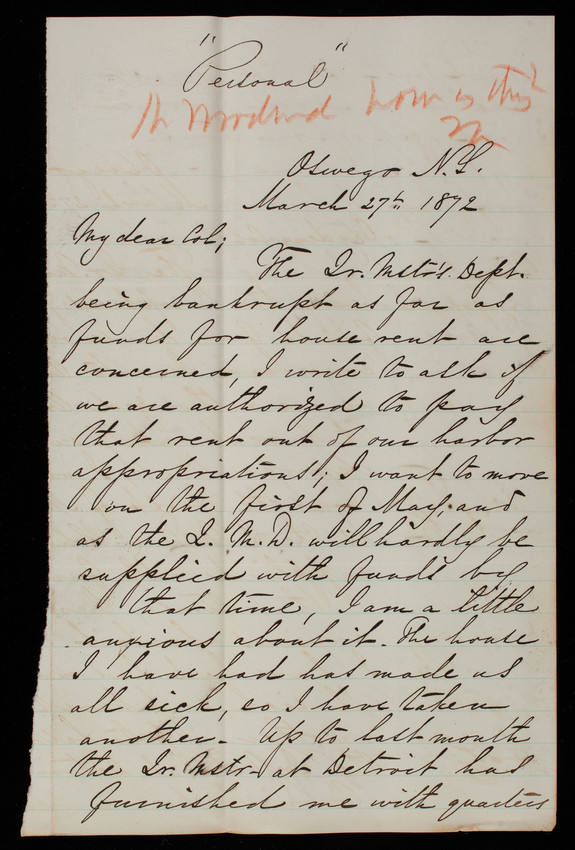 "Personal"
how is this?
Oswego N.Y.
March 27th 1872
My dear Col;
The Qr. Mstr's. Dept.
being bankrupt as far as
funds for house rent are
concerned, I write to ask if
we are authorized to pay
that rent out of our harbor
appropriations; I want to move
on the first of May, and
as the Q. M. D. will hardly be
supplied with funds by
that time, I am a little
anxious about it. The house
I have had has made us
all sick, so I have taken
another. Up to last month
the Qr. Mstr. at Detroit had
furnished me with quarters